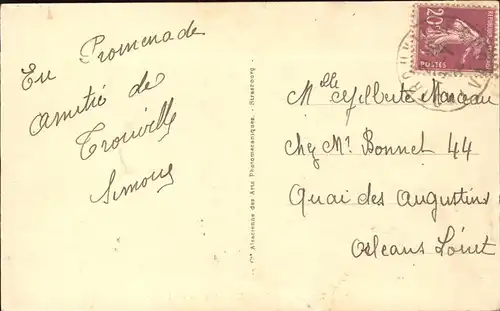 En Promenade
Amitié de
Trouville
Simone
Cie Alsacienne des Arts Photomécaniques. - Strasbourg -
20c
POSTES
Mlle Gilberte Marceau
chez Mr Bonnet 44
Quai des Augustins
Orléans Loiret